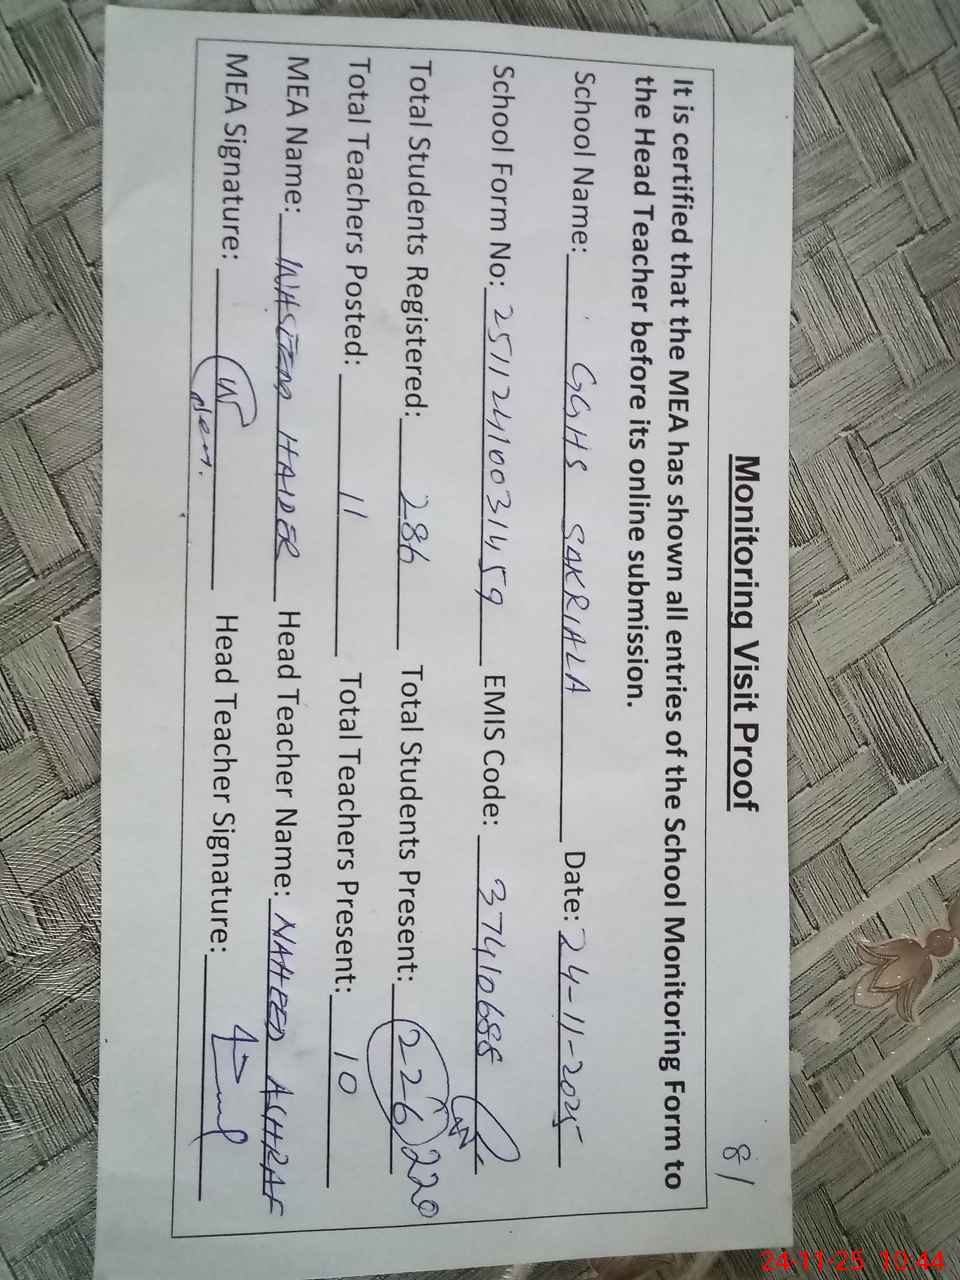 8/
Monitoring Visit Proof
It is certified that the MEA has shown all entries of the School Monitoring Form to
the Head Teacher before its online submission.
School Name: GGHS SAKRIALA Date: 24-11-2025
School Form No: 251124100331459 EMIS Code: 37410688
Total Students Registered: 286 Total Students Present: 226 220
Total Teachers Posted: 11 Total Teachers Present: 10
MEA Name: WASEEM HAIDER Head Teacher Name: NAHEED ASHRAF
MEA Signature: Head Teacher Signature:
24-11-25 10:44